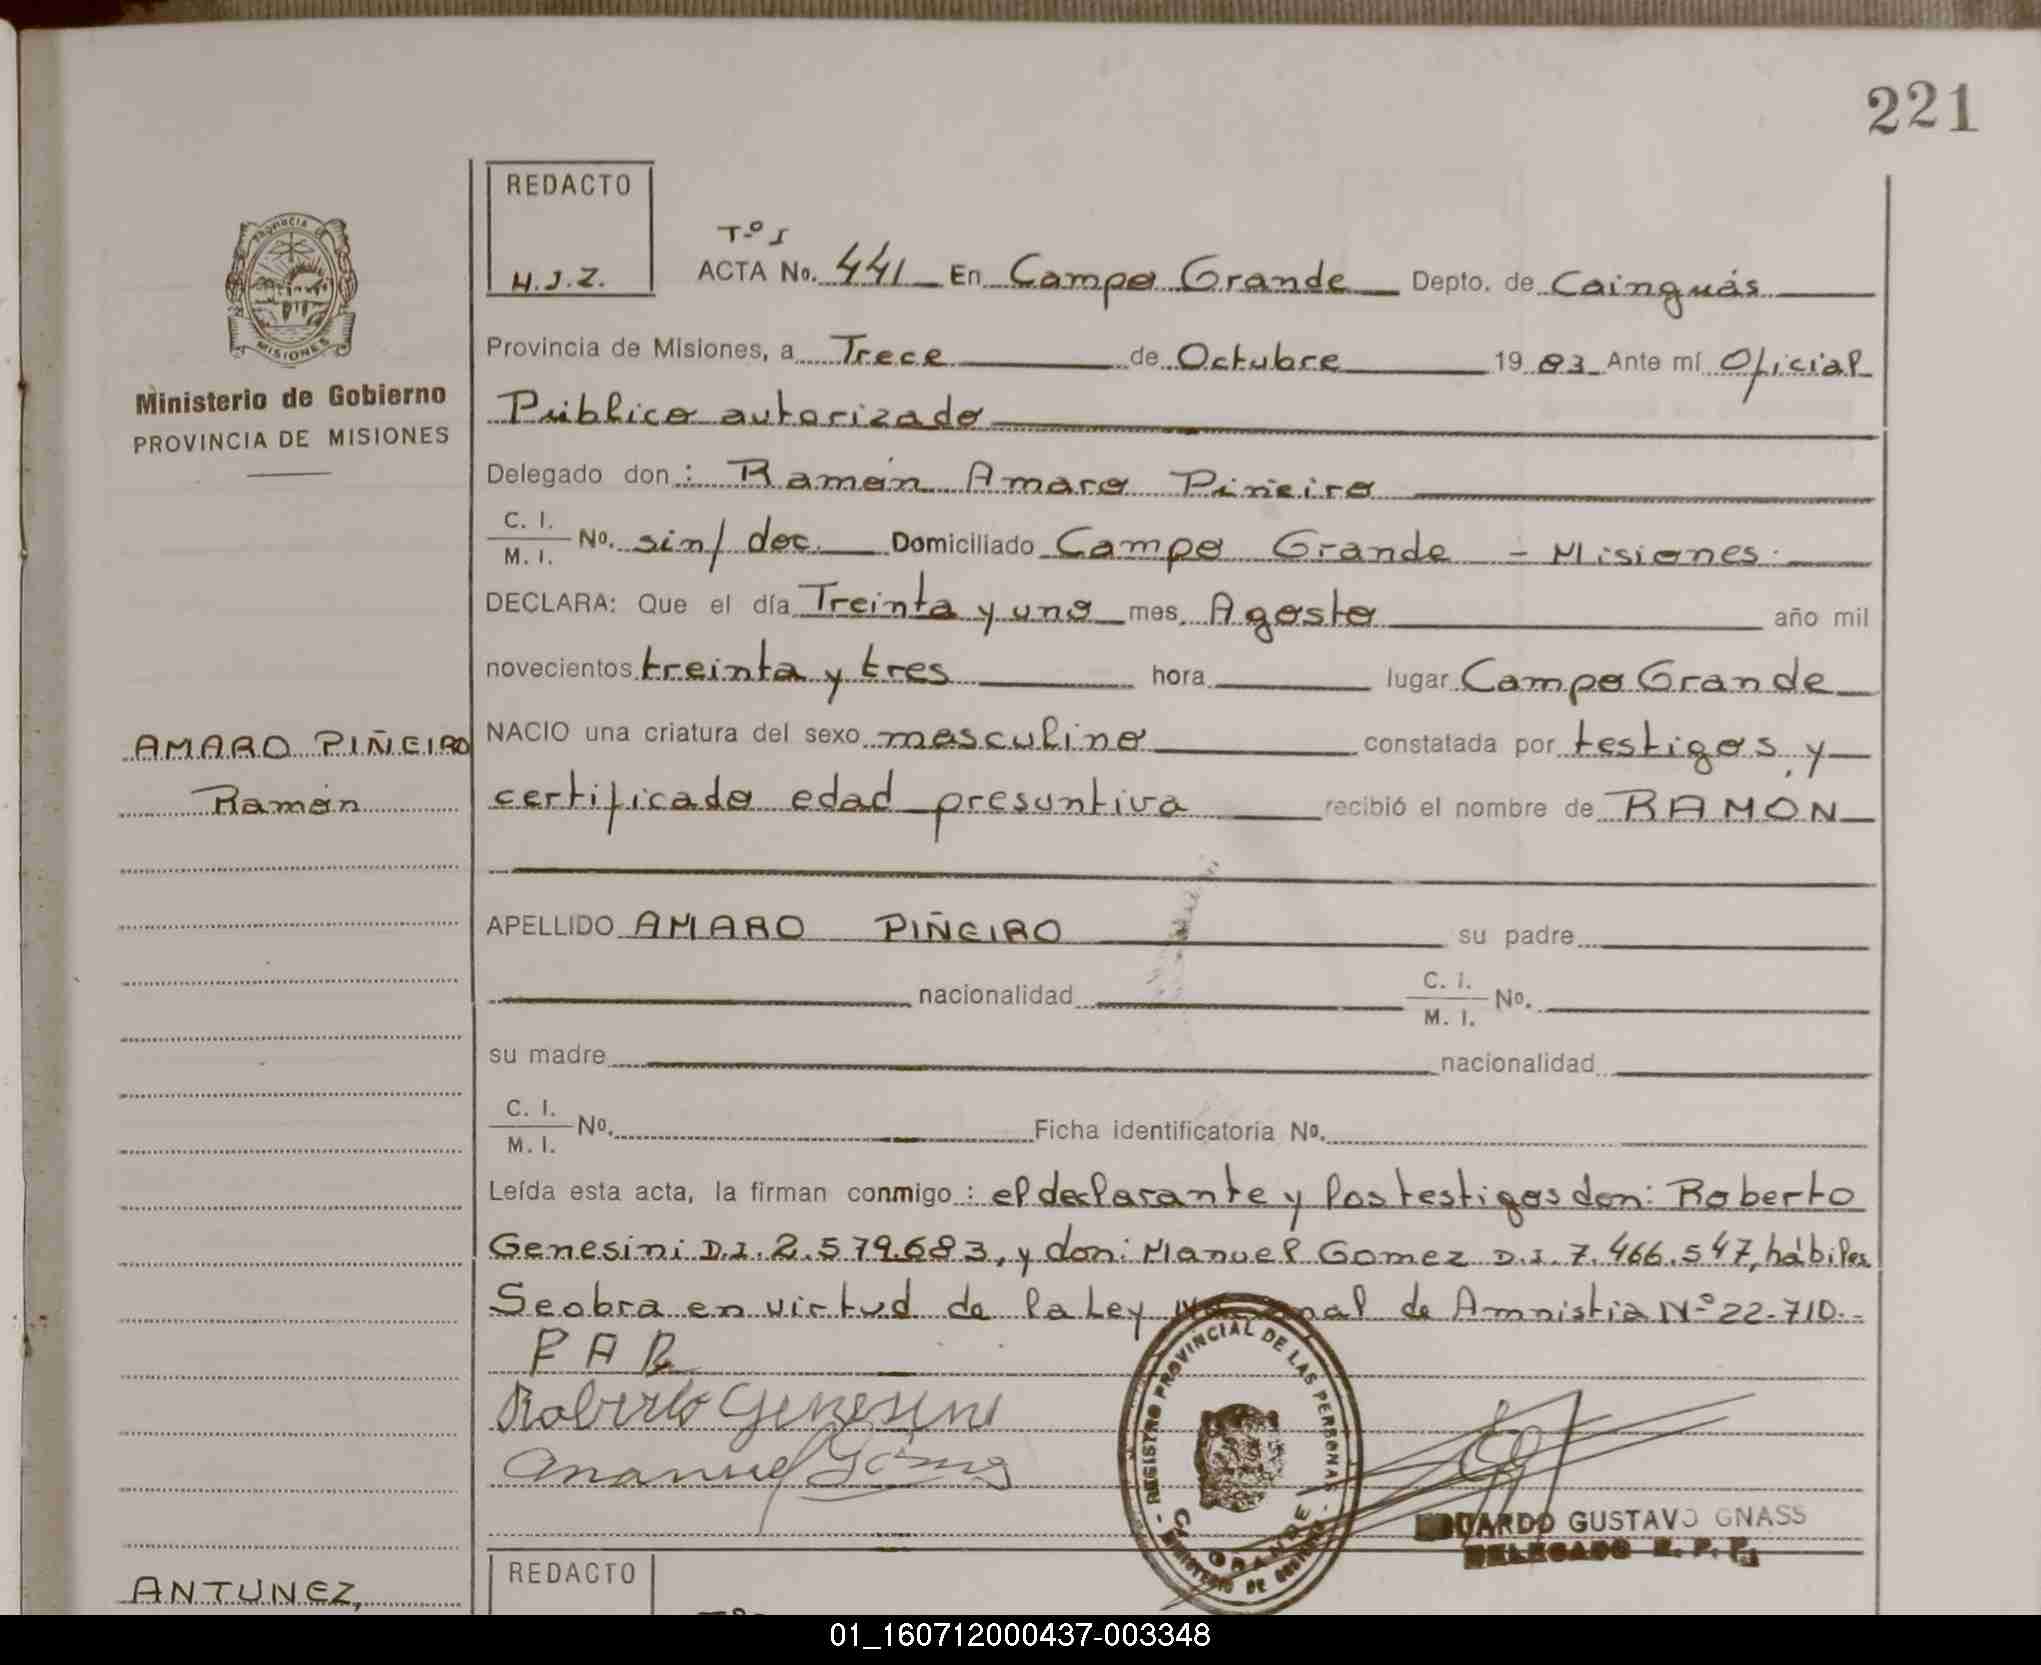 221
REDACTO
H.J.Z.
Tº I
ACTA No. 441 En Campo Grande Depto. de Cainguás
Provincia de Misiones, a Trece de Octubre 1983 Ante mí Oficial
Público autorizado
PROVINCIA DE MISIONES
Ministerio de Gobierno
PROVINCIA DE MISIONES
Delegado don: Ramón Amaro Piñeiro
C. I.
M. I. No. sin/ doc. Domiciliado Campo Grande - Misiones.
DECLARA: Que el día Treinta y uno mes Agosto año mil
novecientos treinta y tres hora lugar Campo Grande
AMARO PIÑEIRO
Ramón
NACIO una criatura del sexo masculino constatada por testigos y
certificado edad presuntiva recibió el nombre de RAMON
APELLIDO AMARO PIÑEIRO su padre
nacionalidad C. I. M. I. No.
su madre nacionalidad
C. I. M. I. No. Ficha identificatoria No.
Leída esta acta, la firman conmigo: el declarante y los testigos don: Roberto
Genesini D.I. 2.579.683, y don: Manuel Gomez D.I. 7.466.547, hábiles
Se obra en virtud de la Ley Nacional de Amnistia Nº 22.710.-
Roberto Genesini
Manuel Gómez
- REGISTRO PROVINCIAL DE LAS PERSONAS -
MINISTERIO DE GOBIERNO
GRANDE
EDUARDO GUSTAVO GNASS
DELEGADO R. P. P.
ANTUNEZ,
REDACTO
01_160712000437-003348